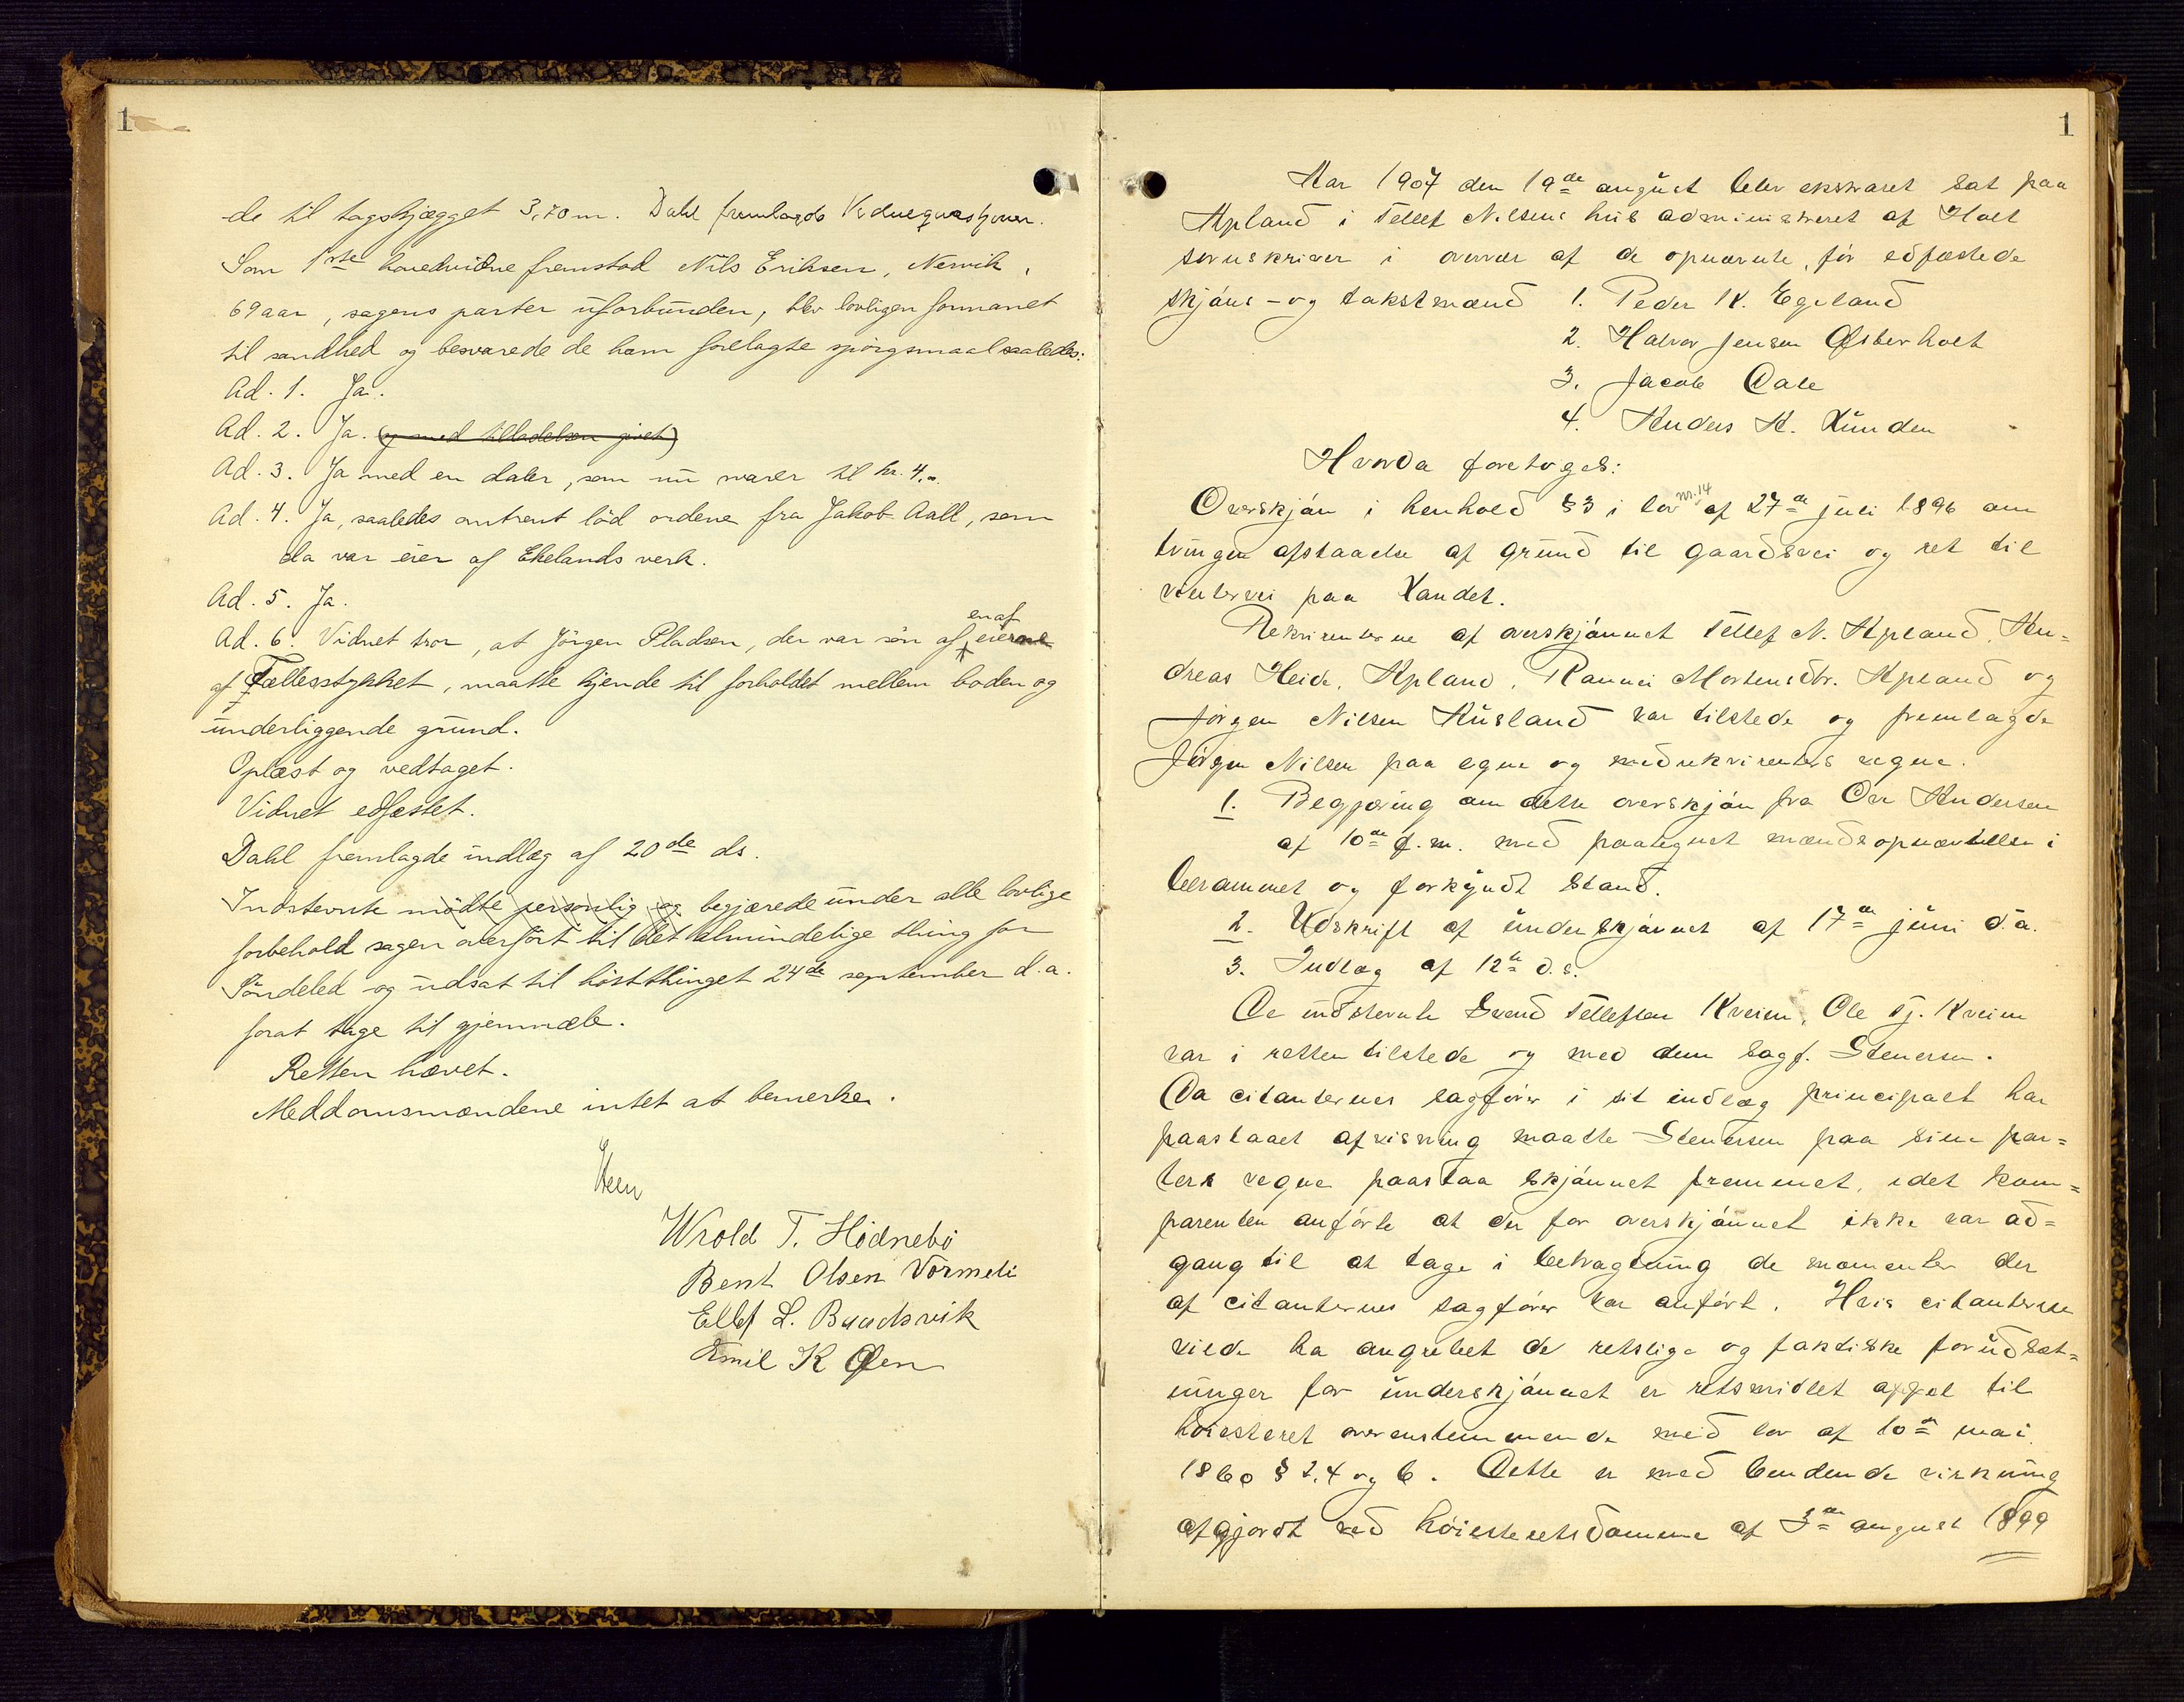 1
de til tagskjægget 3,70 m. Dahl fremlagde
Som 1ste hovedvidne fremstod Nils Eriksen, Nesvik,
69 aar, sagens parter uforbunden, blev lovligen formanet
til sandhed og besvarede de ham forelagte spörgsmaal saaledes:
Ad. 1. Ja.
Ad. 2. Ja. (og med tilladelsen givet)
Ad. 3. Ja med en daler, som nu svarer til kr. 4.
Ad. 4. Ja, saaledes omtrent löd ordene fra Jakob Aall, som
da var eier af Ekelands verk.
Ad. 5. Ja.
en af
Ad. 6. Vidnet tror, at Jörgen Pladsen, der var sön af eierne
af Fællesstykket, maatte kjende til forholdet mellem boden og
underliggende grund.
Oplæst og vedtaget.
Vidnet edfæstet.
Dahl fremlagde indlæg af 20de ds.
Indstevnte mödte personlig og begjærede under alle lovlige
forbehold sagen overfört til det almindelige thing for
Söndeled og udsat til höstthinget 24de september d.a.
forat tage til gjenmæle.
Retten hævet.
Meddomsmændene intet at bemerke.
Wrold T. Hödnebö
Bent Olsen Vormeli
Ellef L. Buudsvik
Emil K Öen
1
Aar 1907 den 19de august blev ekstraret sat paa
Apland i Tellef Nilsens hus administreret af Holt
sorenskriver i overvær af de opnævnte, för edfæstede
skjöns- og takstmænd 1. Peder K. Egeland
2. Halvor Jensen Österholt
3. Jacob Dale
4. Anders A. Lunden
Hvorda foretoges:
nr. 14
Overskjön i henhold §3 i lov af 27de juli 1896 om
tvungen afstaaelse af grund til gaardsvei og ret til
vintervei paa Landet.
Rekvirenterne af overskjönnet Tellef N. Apland, An=
dreas Heide, Apland, Rannei Mortensdtr. Apland og
Jörgen Nilsen Aasland var tilstede og fremlagde
Jörgen Nilsen paa egne og medrekvirenters vegne.
1. Begjæring om dette overskjön fra Ove Andersen
af 10de f.m. med paategnet mændsopnævnelse i
berammet og forkyndt stand.
2. Udskrift af underskjönnet af 17de juni d.a.
3. Indlæg af 12te d.s.
De indstevnte Svend Tellefsen Kveim, Ole Tj. Kveim
var i retten tilstede og med dem sagf. Stenersen.
Da citanternes sagförer i sit indlæg principalt har
paastaaet afvisning maatte Stenersen paa sine par=
ters vegne paastaa skjönnet fremmet, idet kom=
parenten anförte at der for overskjönnet ikke var ad=
gang til at tage i betragtning de momenter der
af citanternes sagförer var anfört. Hvis citanterne
vilde ha angrebet de retslige og faktiske forudsæt=
ninger for underskjönnet er retsmidlet appel til
höiesteret overensstemmende med lov af 10de mai
1860 § 2, 4 og 6. Dette er med bindende virkning
afgjordt ved höiesteretsdomme af 3de august 1899